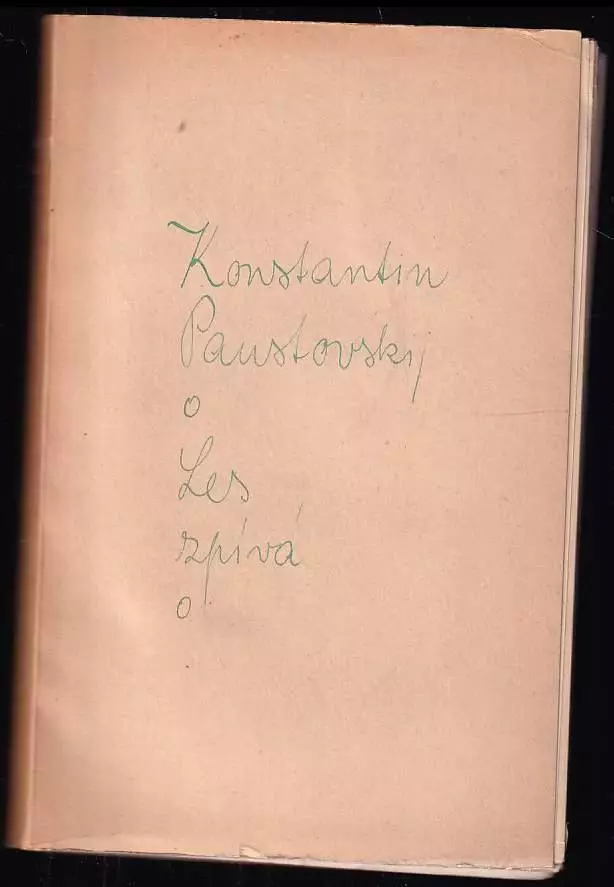 Konstantin
Paustovskij
o
Les
zpívá
o